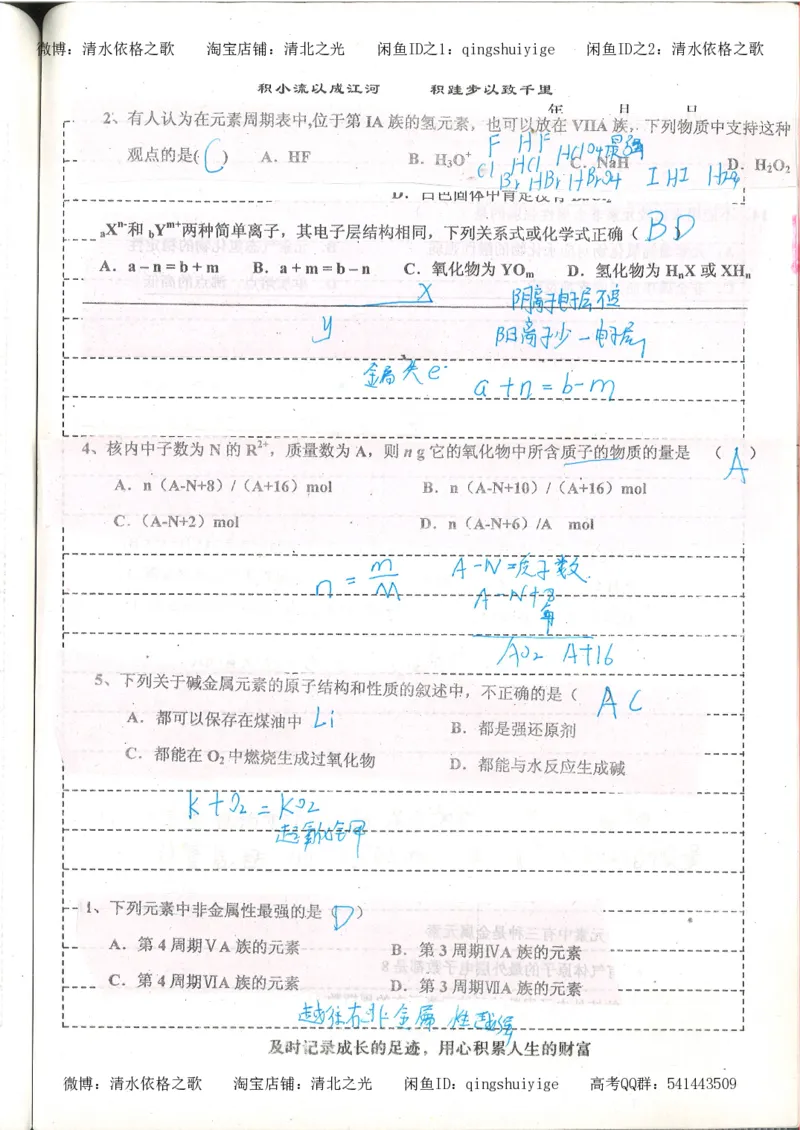 微博：清水依格之歌 淘宝店铺：清北之光 闲鱼ID之1：qingshuiyige 闲鱼ID之2：清水依格之歌
积小流以成江河 积跬步以致千里
年 月 日
2、有人认为在元素周期表中,位于第 IA 族的氢元素，也可以放在 VIIA 族，下列物质中支持这种
F HF HClO4最强
观点的是( C ) A．HF B．H₃O⁺ C．NaH D．H₂O₂
Cl HCl
Br HBr HBrO4 I HI
D．白色固体中肯定没有
ₐXⁿ⁻和 ᵦYᵐ⁺两种简单离子，其电子层结构相同，下列关系式或化学式正确（ BD ）
A．a－n＝b＋m B．a＋m＝b－n C．氧化物为 YOₘ D．氢化物为 HₙX 或 XHₙ
X 阴离子电子层不变
y 阳离子少一电子层
金属失e⁻ a+n=b-m
4、核内中子数为 N 的 R²⁺，质量数为 A，则 n g 它的氧化物中所含质子的物质的量是 （ A ）
A．n（A-N+8）/（A+16）mol B．n（A-N+10）/（A+16）mol
C．（A-N+2）mol D．n（A-N+6）/A mol
n = m/M A-N=质子数
A-N+8
AO2 A+16
5、下列关于碱金属元素的原子结构和性质的叙述中，不正确的是（ AC
A．都可以保存在煤油中 Li B．都是强还原剂
C．都能在 O₂ 中燃烧生成过氧化物 D．都能与水反应生成碱
K+O2=KO2
超氧化钾
1、下列元素中非金属性最强的是（ D ）
A．第 4 周期ⅤA 族的元素 B．第 3 周期ⅣA 族的元素
C．第 4 周期ⅥA 族的元素 D．第 3 周期ⅦA 族的元素
越往右非金属性越强
及时记录成长的足迹，用心积累人生的财富
微博：清水依格之歌 淘宝店铺：清北之光 闲鱼ID：qingshuiyige 高考QQ群：541443509